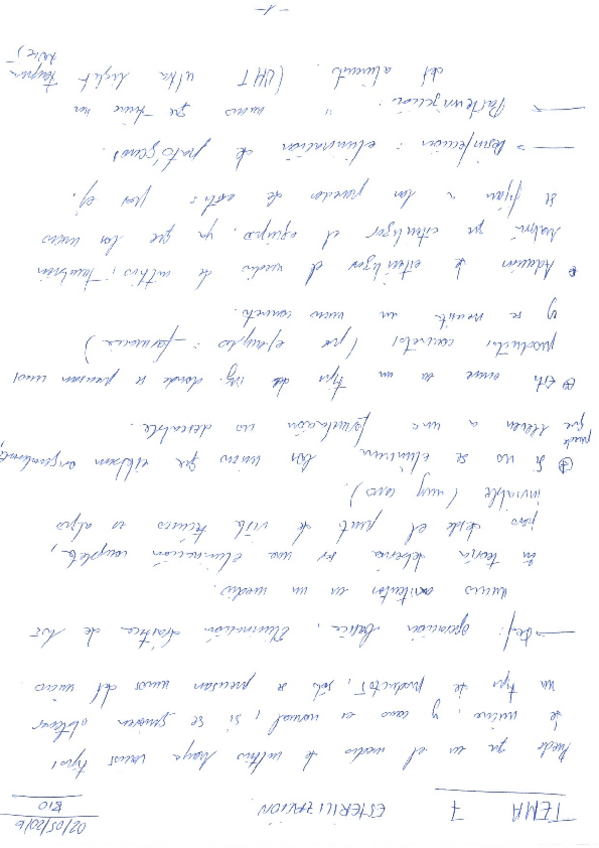 02/05/2016
BIO
TEMA 7 ESTERILIZACIÓN
Puede qe en el medio de cultivo haya varios tipos
de micro, y como es normal, si se quieren obtener
un tipo de productos, solo se precisan unos del micro
→ Def: operación básica, eliminación drástica de los
micros existentes en un medio.
En teoría debería ser una eliminación completa,
pero desde el punto de vista técnico es algo
inviable (muy caro).
⊕ Si no se eliminan los micros que
puede que lleven a una fermentación no deseable.
⊕ Esto ocurre en un tipo de donde se precisan unos
productos concretos (por ejemplo: farmacia)
y se necesita un micro concreto.
• Además de esterilizar el medio de cultivo, también
habrá qe esterilizar el equipo, ya que los micros
se fijan a las paredes de estos por ej.
→ Desinfección: eliminación de patógenos.
→ Pasteurización: " micros qe tiene
del alimento. (UHT ultra hight
- 1 -